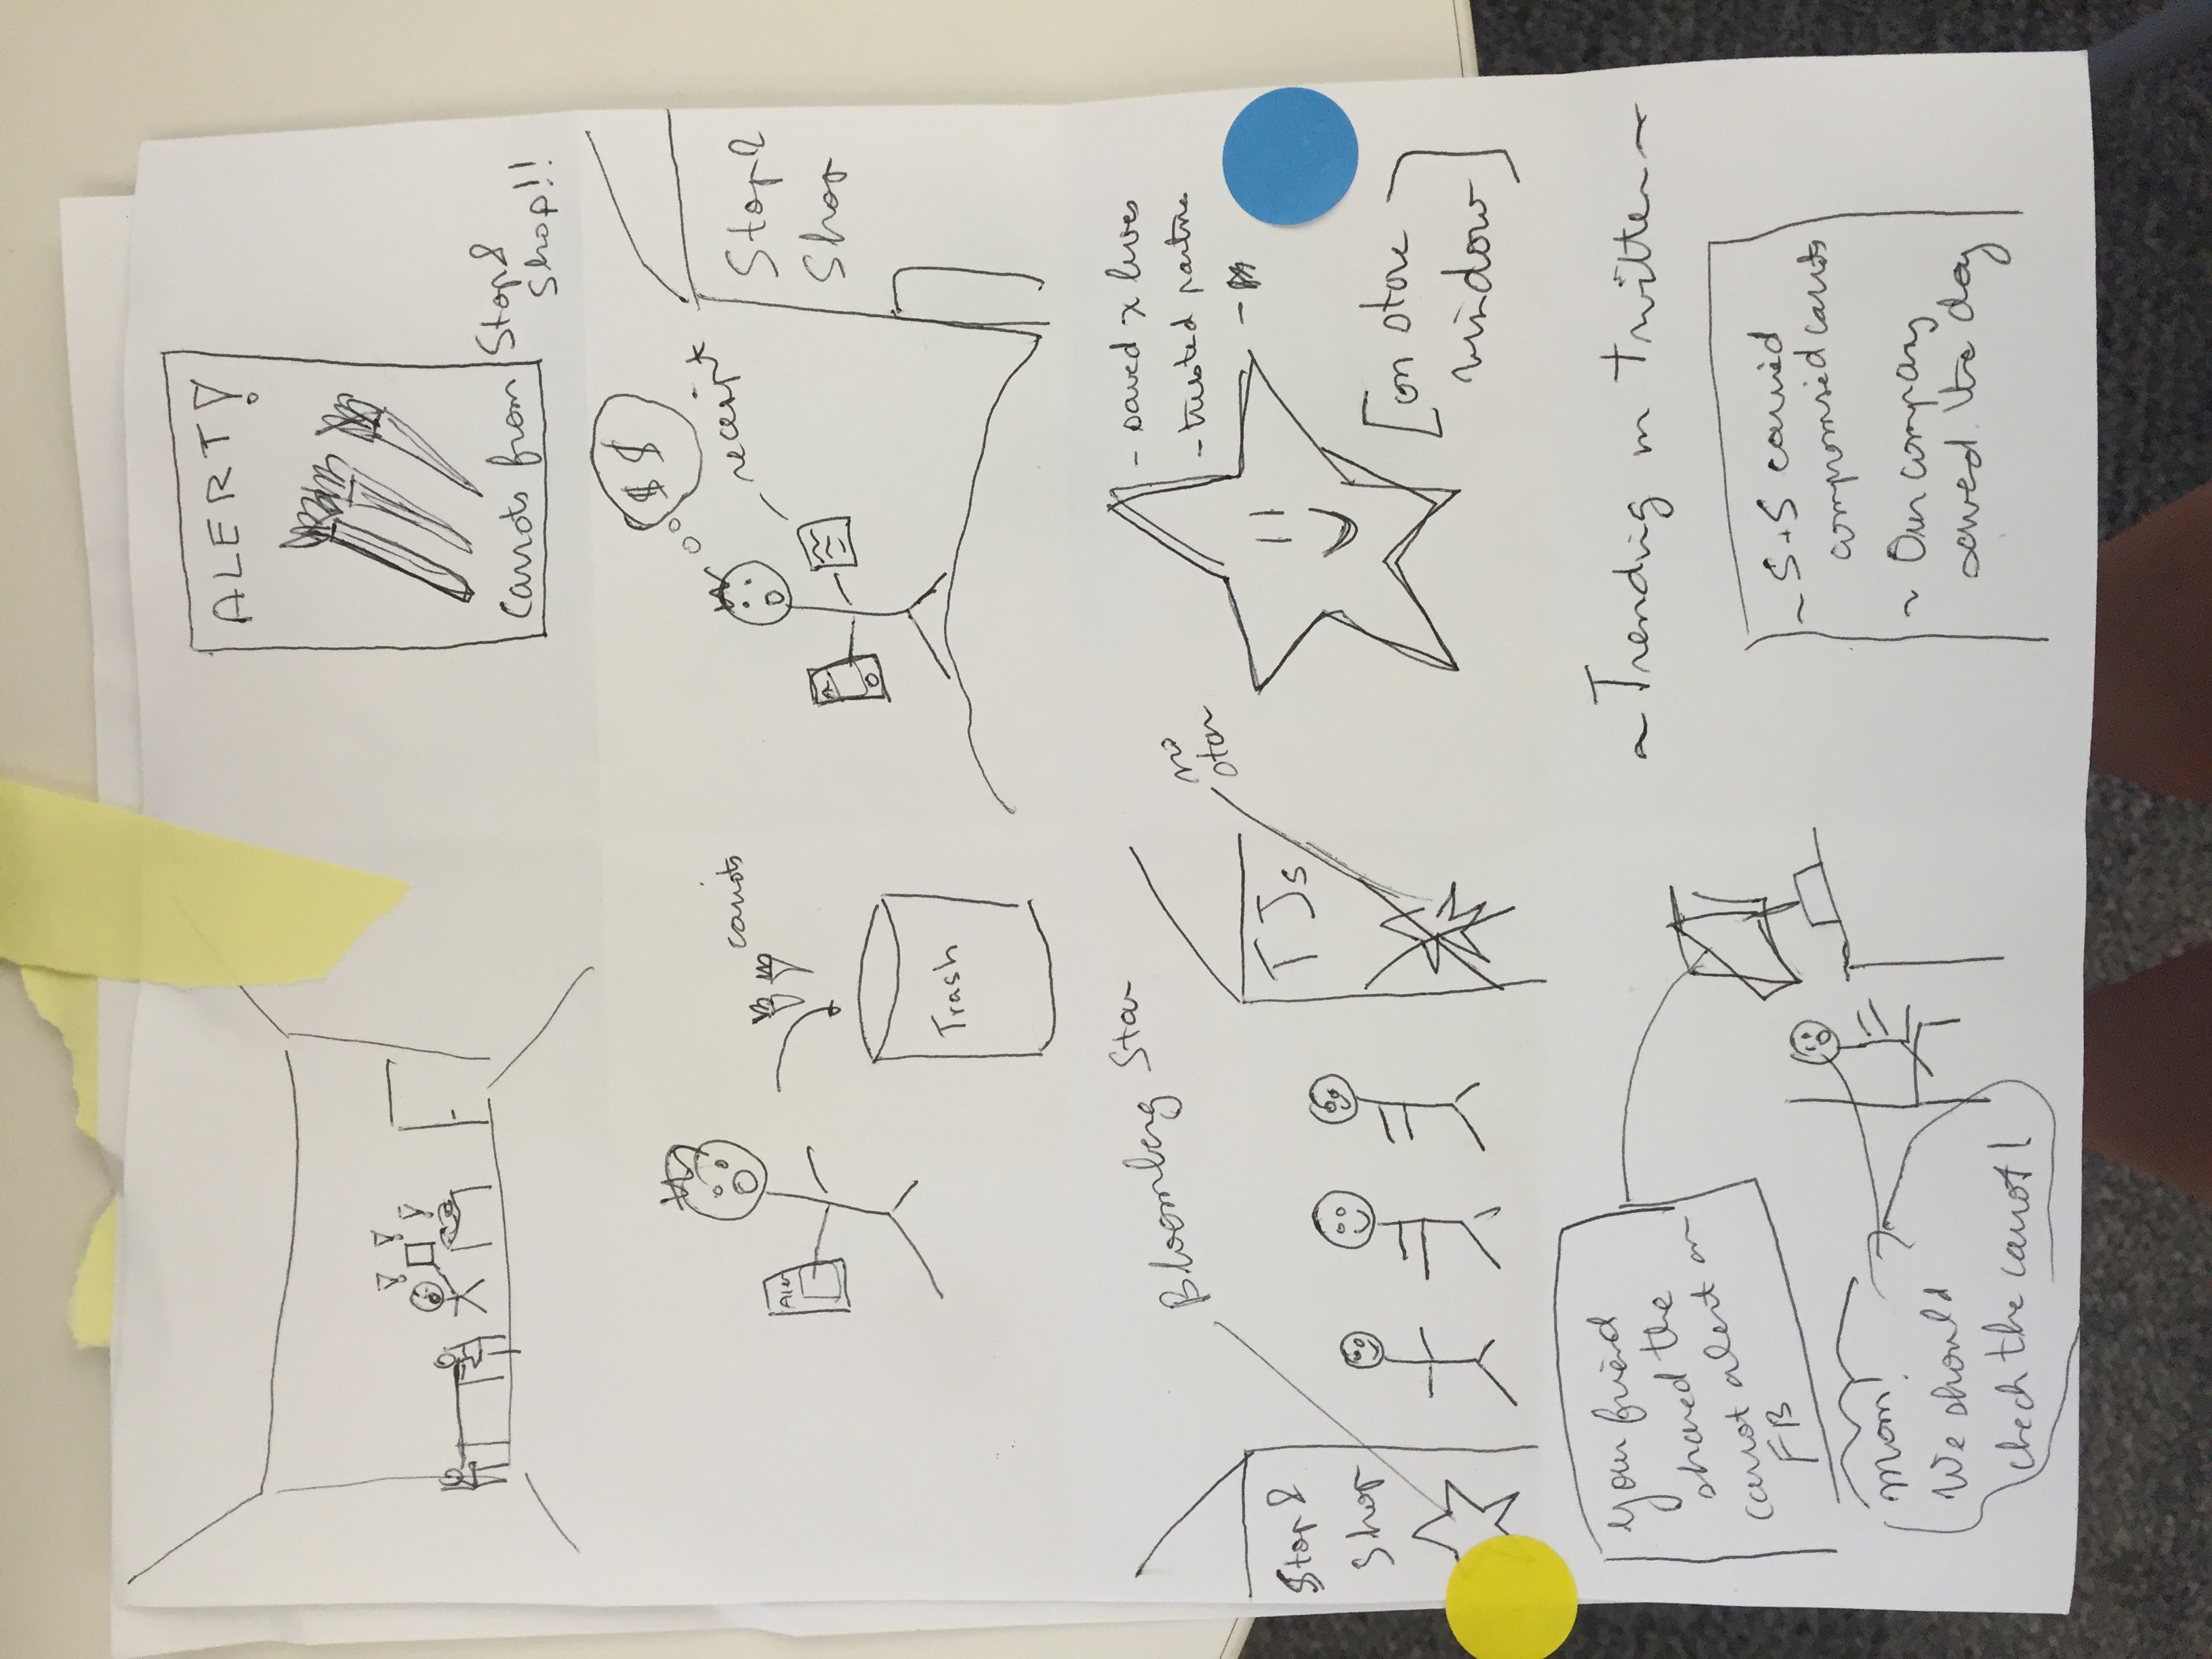 ALERT!
Carrots from Stop &
Shop!!
$ $
receipt
Stop &
Shop
carrots
Aler
Trash
Bloomberg Star
no
star
Stop &
Shop
TJs
- saved x lives
- trusted partner
[on store
window]
Your friend
shared the
carrot alert on
FB
Mom!
We should
check the carrot!
~ Trending on twitter ~
~ S+S carried
compromised carrots
~ Our company
saved the day